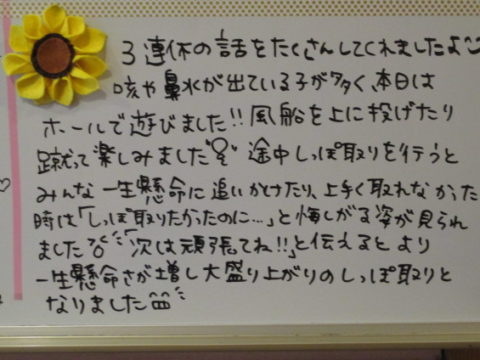 3連休の話をたくさんしてくれましたよ
咳や鼻水が出ている子が多く、本日は
ホールで遊びました!!風船を上に投げたり
蹴って楽しみました 途中しっぽ取りを行うと
みんな一生懸命に追いかけたり、上手く取れなかった
時は「しっぽ取りたかったのに…」と悔しがる姿が見られ
ました 「次は頑張てね!!」と伝えるとより
一生懸命さが増し大盛り上がりのしっぽ取りと
なりました